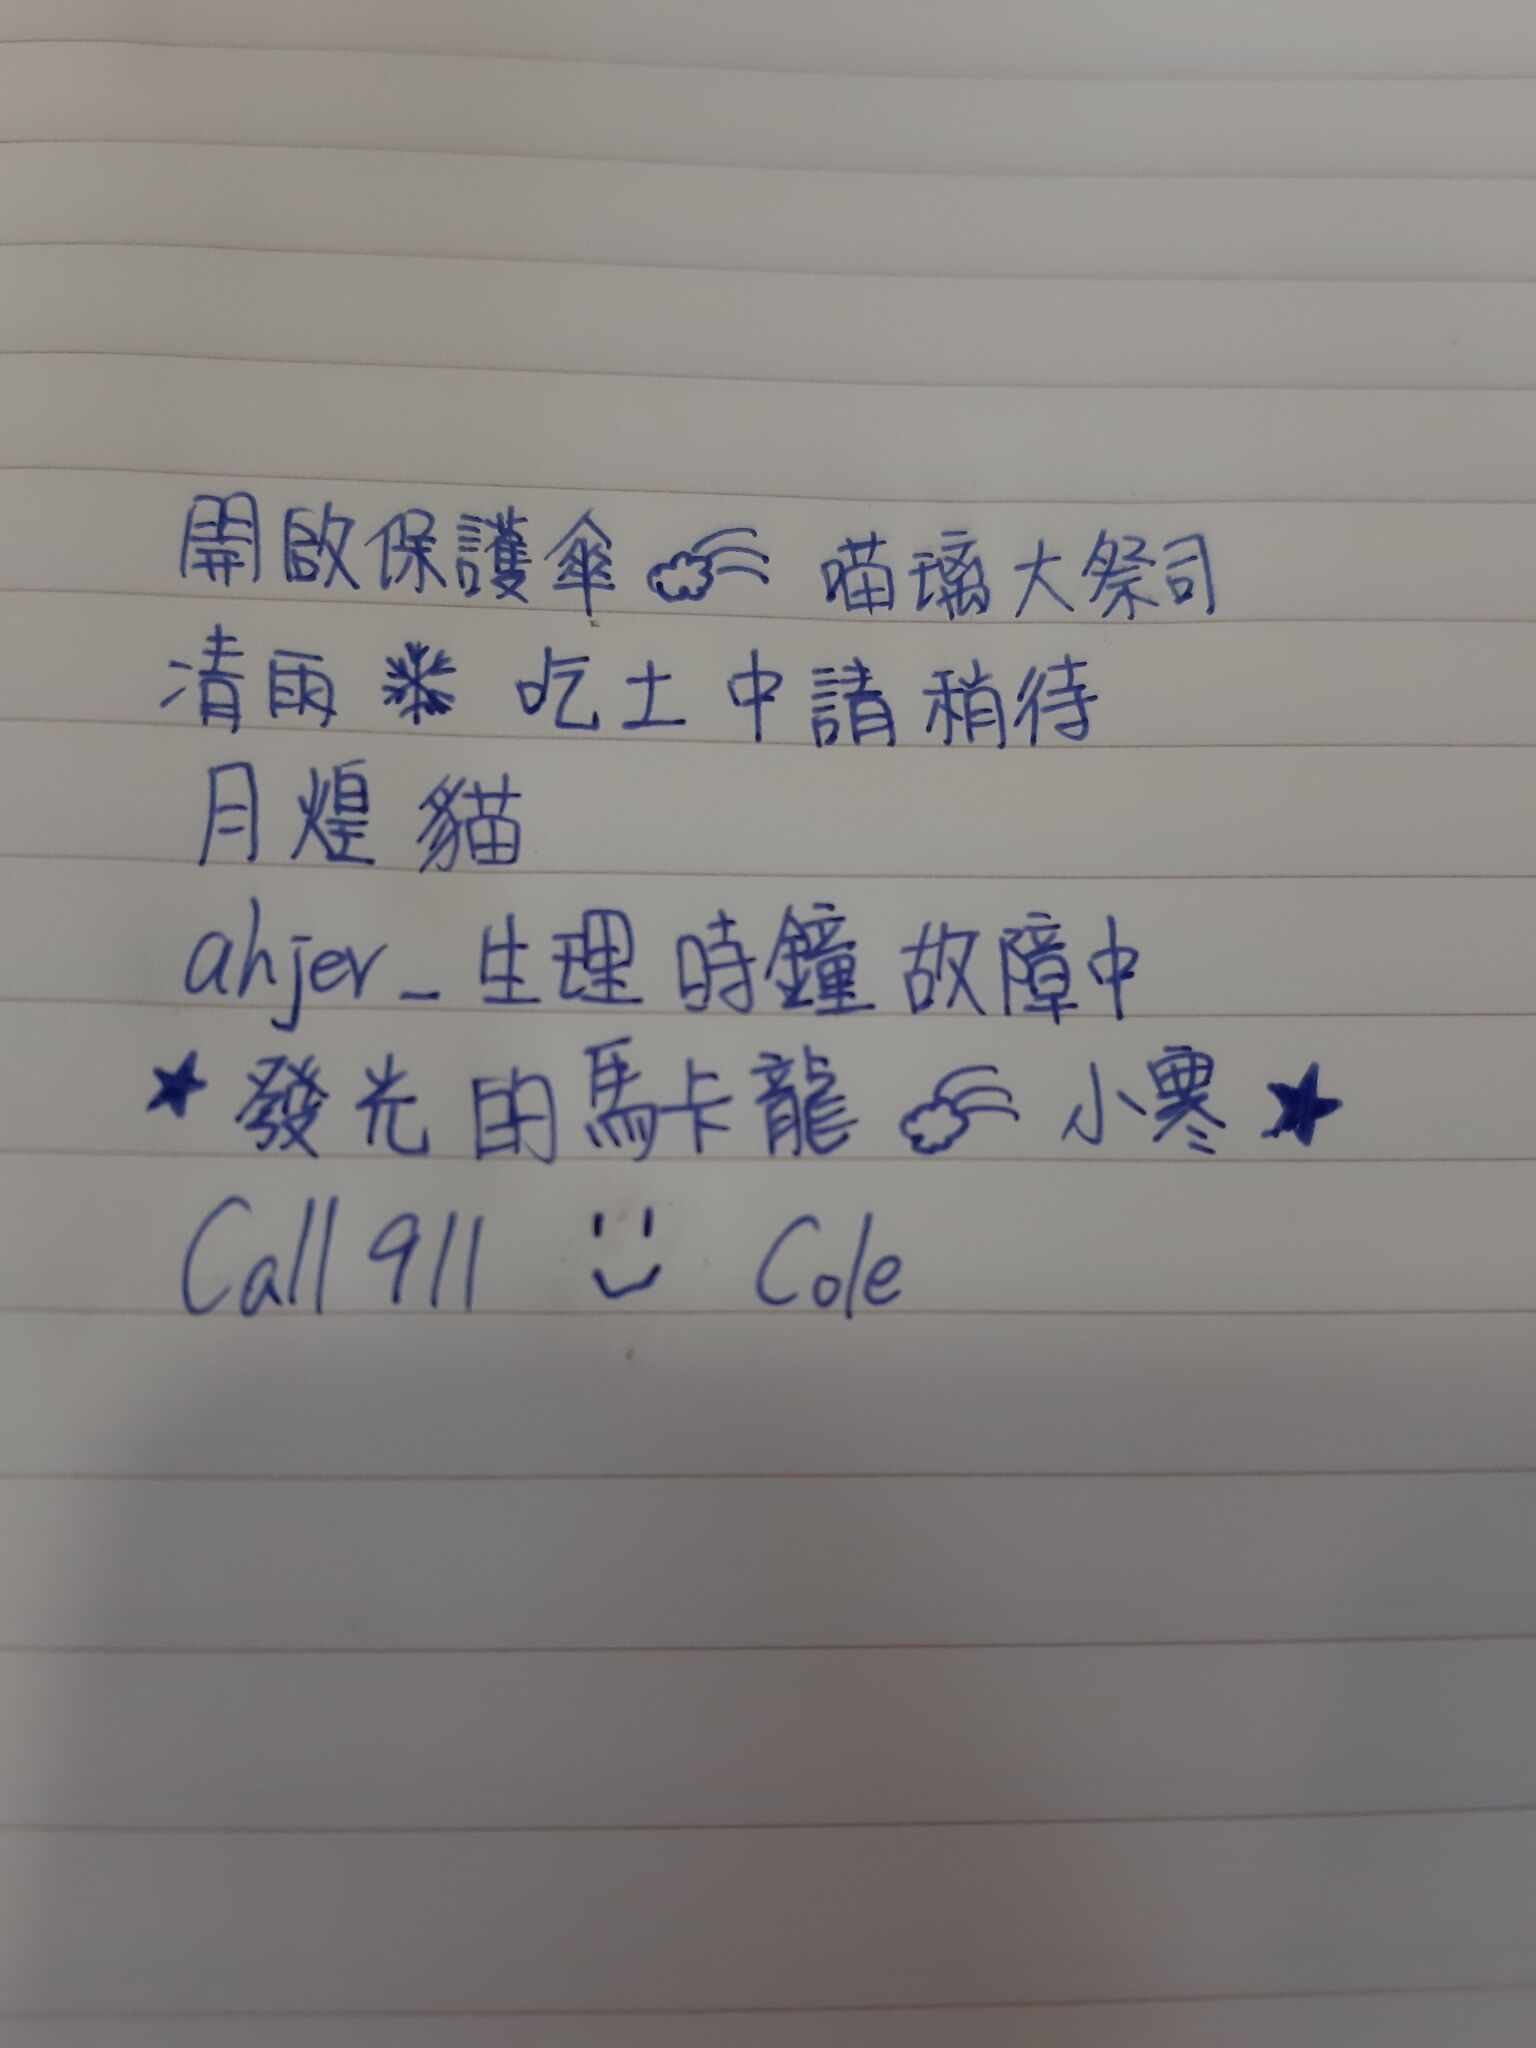 開啟保護傘 喵璃大祭司
清雨 吃土中請稍待
月煌貓
ahjer_生理時鐘故障中
★發光的馬卡龍 小寒★
Call 911 Cole